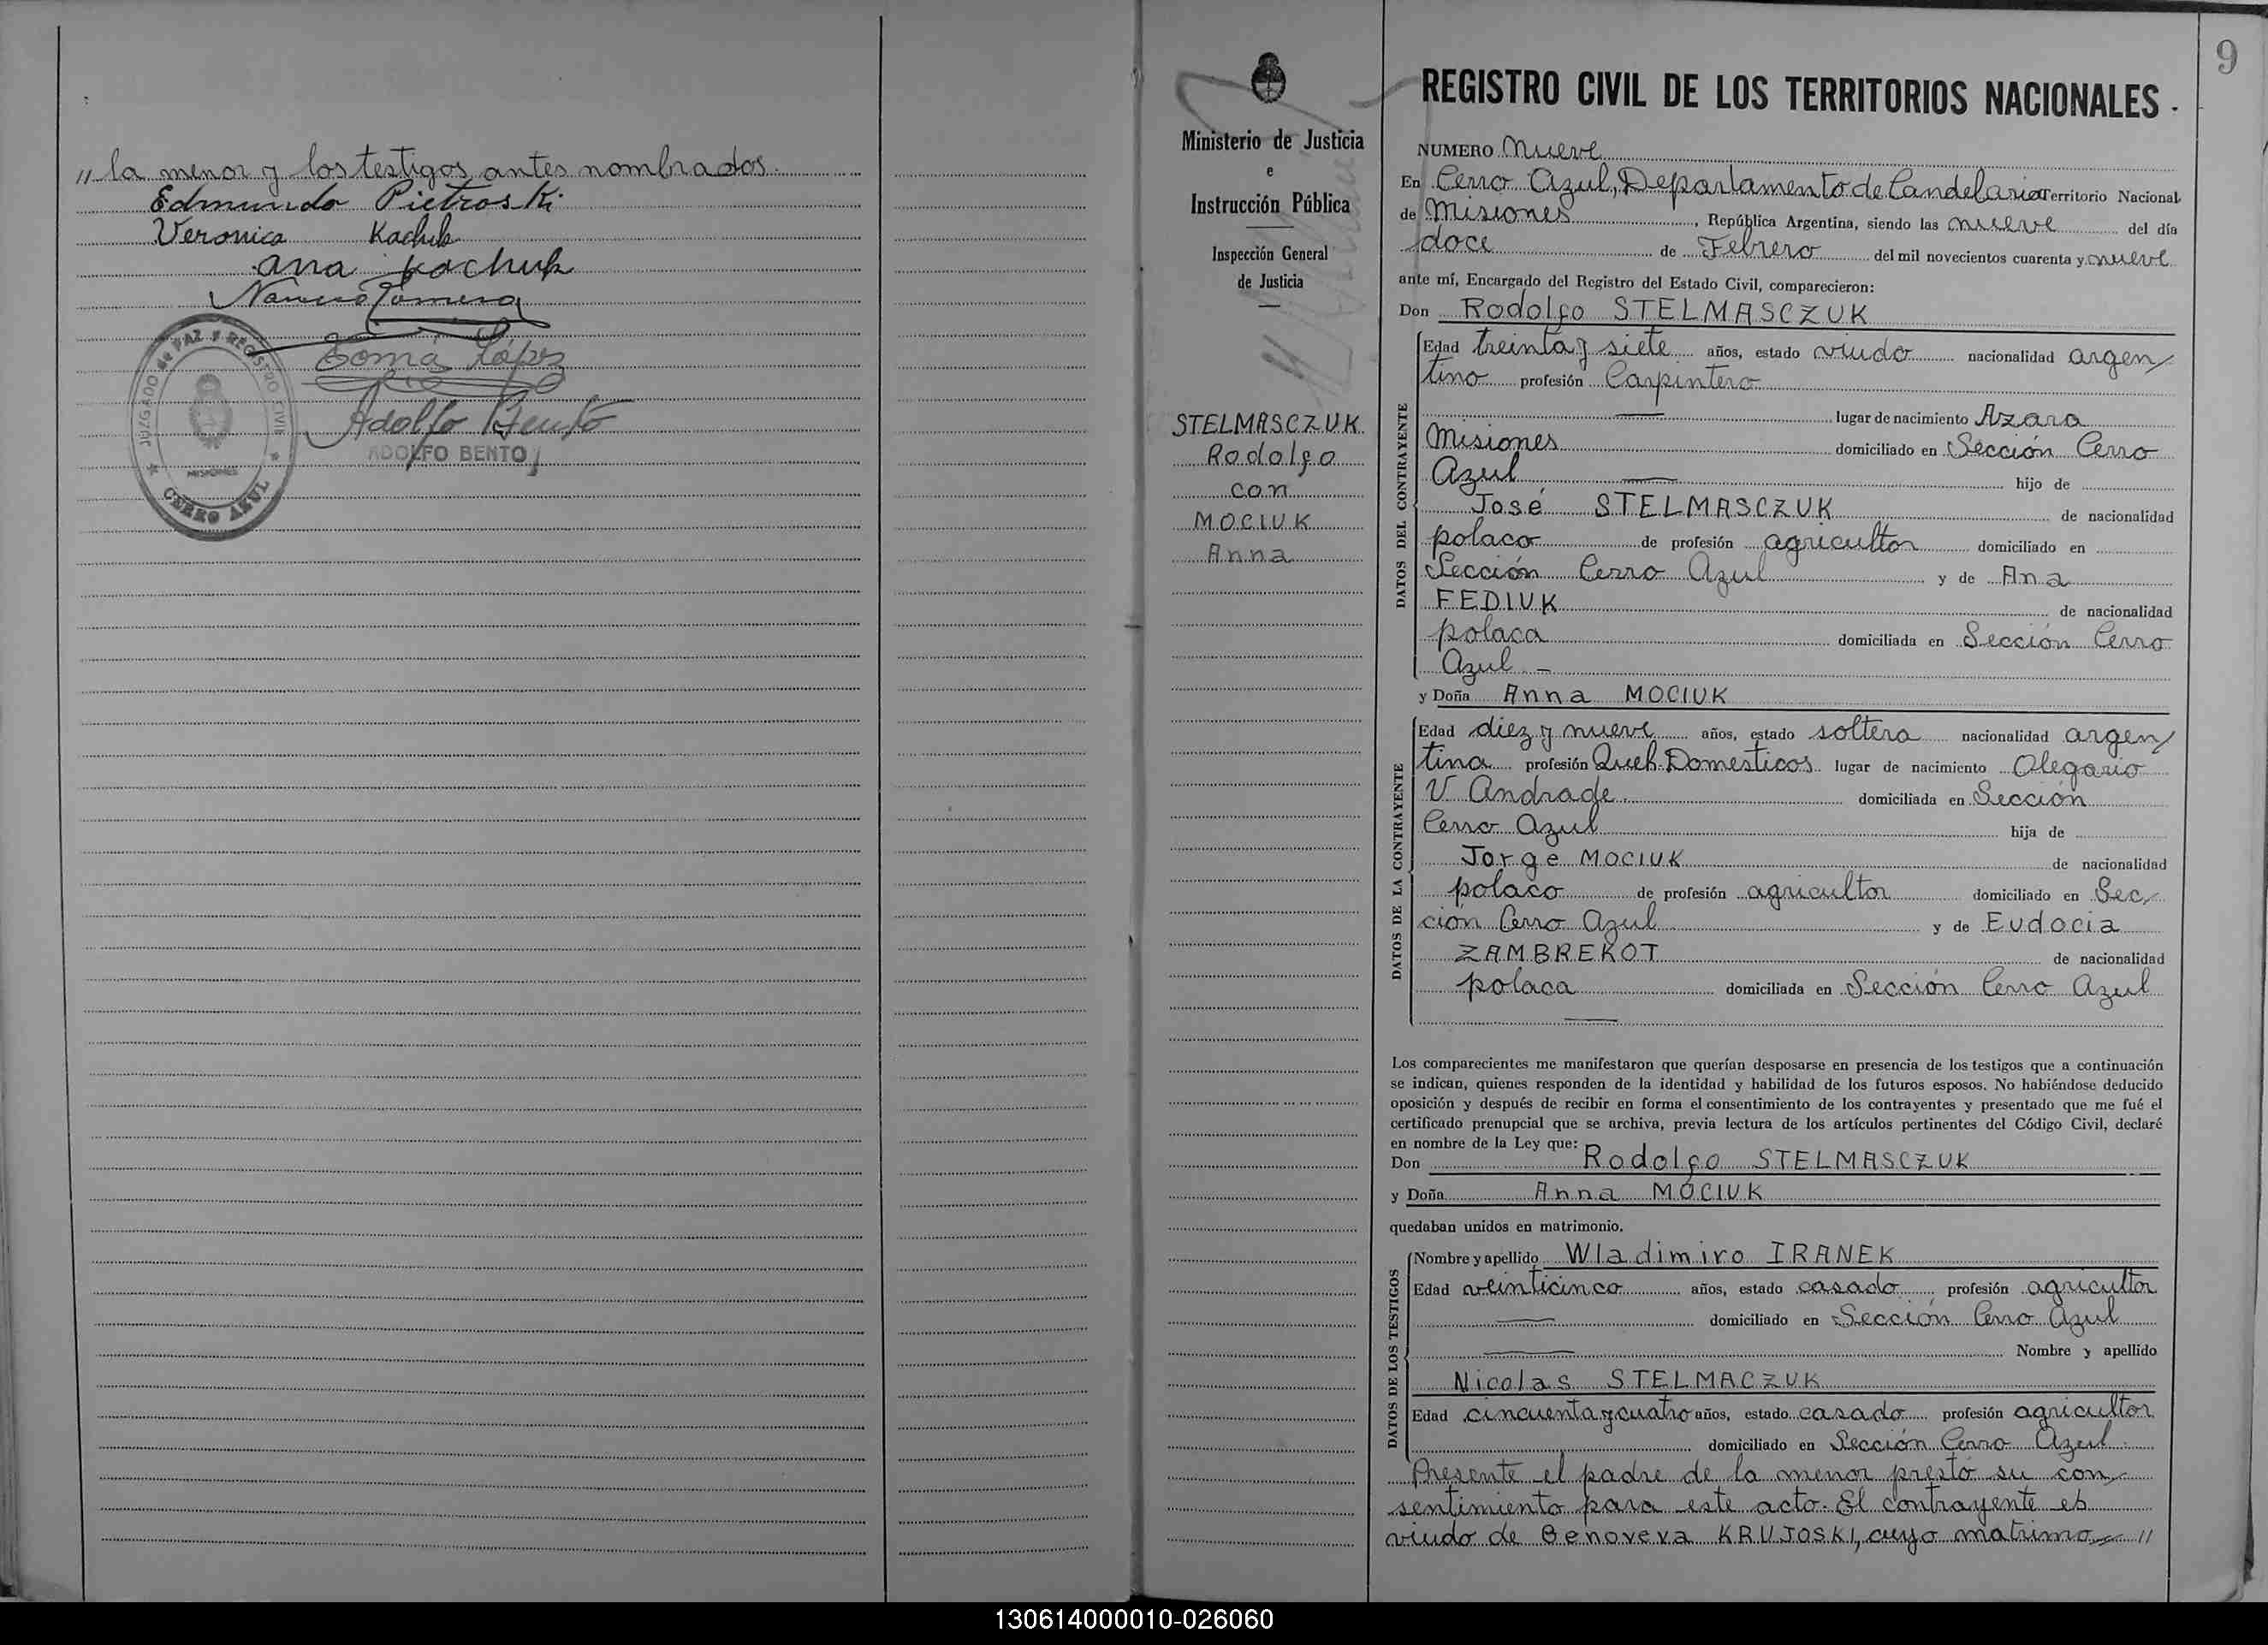 " la menor y los testigos antes nombrados.
Edmundo Pietroski
Veronica Kachuk
Ana Kachuk
Tomás López
Adolfo Bento
ADOLFO BENTO
JUZGADO de PAZ Y REGISTRO CIVIL
MISIONES
CERRO AZUL
9
Ministerio de Justicia
e
Instrucción Pública
Inspección General
de Justicia
STELMASCZUK
Rodolfo
con
MOCIUK
Anna
REGISTRO CIVIL DE LOS TERRITORIOS NACIONALES
NUMERO Nueve
En Cerro Azul, Departamento de Candelaria Territorio Nacional
de Misiones, República Argentina, siendo las nueve del día
doce de Febrero del mil novecientos cuarenta y nueve
ante mí, Encargado del Registro del Estado Civil, comparecieron:
Don Rodolfo STELMASCZUK
DATOS DEL CONTRAYENTE
Edad treinta y siete años, estado viudo nacionalidad argen/
tino profesión Carpintero
lugar de nacimiento Azara
Misiones domiciliado en Sección Cerro
Azul hijo de
José STELMASCZUK de nacionalidad
polaco de profesión agricultor domiciliado en
Sección Cerro Azul y de Ana
FEDIUK de nacionalidad
polaca domiciliada en Sección Cerro
Azul -
y Doña Anna MOCIUK
DATOS DE LA CONTRAYENTE
Edad diez y nueve años, estado soltera nacionalidad argen/
tina profesión Queh. Domesticos lugar de nacimiento Olegario
V. Andrade. domiciliada en Sección
Cerro Azul hija de
Jorge MOCIUK de nacionalidad
polaco de profesión agricultor domiciliado en Sec/
ción Cerro Azul y de Eudocia
ZAMBREKOT de nacionalidad
polaca domiciliada en Sección Cerro Azul
Los comparecientes me manifestaron que querían desposarse en presencia de los testigos que a continuación
se indican, quienes responden de la identidad y habilidad de los futuros esposos. No habiéndose deducido
oposición y después de recibir en forma el consentimiento de los contrayentes y presentado que me fué el
certificado prenupcial que se archiva, previa lectura de los artículos pertinentes del Código Civil, declaré
en nombre de la Ley que:
Don Rodolfo STELMASCZUK
y Doña Anna MOCIUK
quedaban unidos en matrimonio.
DATOS DE LOS TESTIGOS
Nombre y apellido Wladimiro IRANEK
Edad veinticinco años, estado casado, profesión agricultor
domiciliado en Sección Cerro Azul
Nombre y apellido
Nicolas STELMACZUK
Edad cincuenta y cuatro años, estado casado profesión agricultor
domiciliado en Sección Cerro Azul.
Presente el padre de la menor prestó su con/
sentimiento para este acto. El contrayente es
viudo de Genoveva KRUJOSKI, cuyo matrimo- "
130614000010-026060